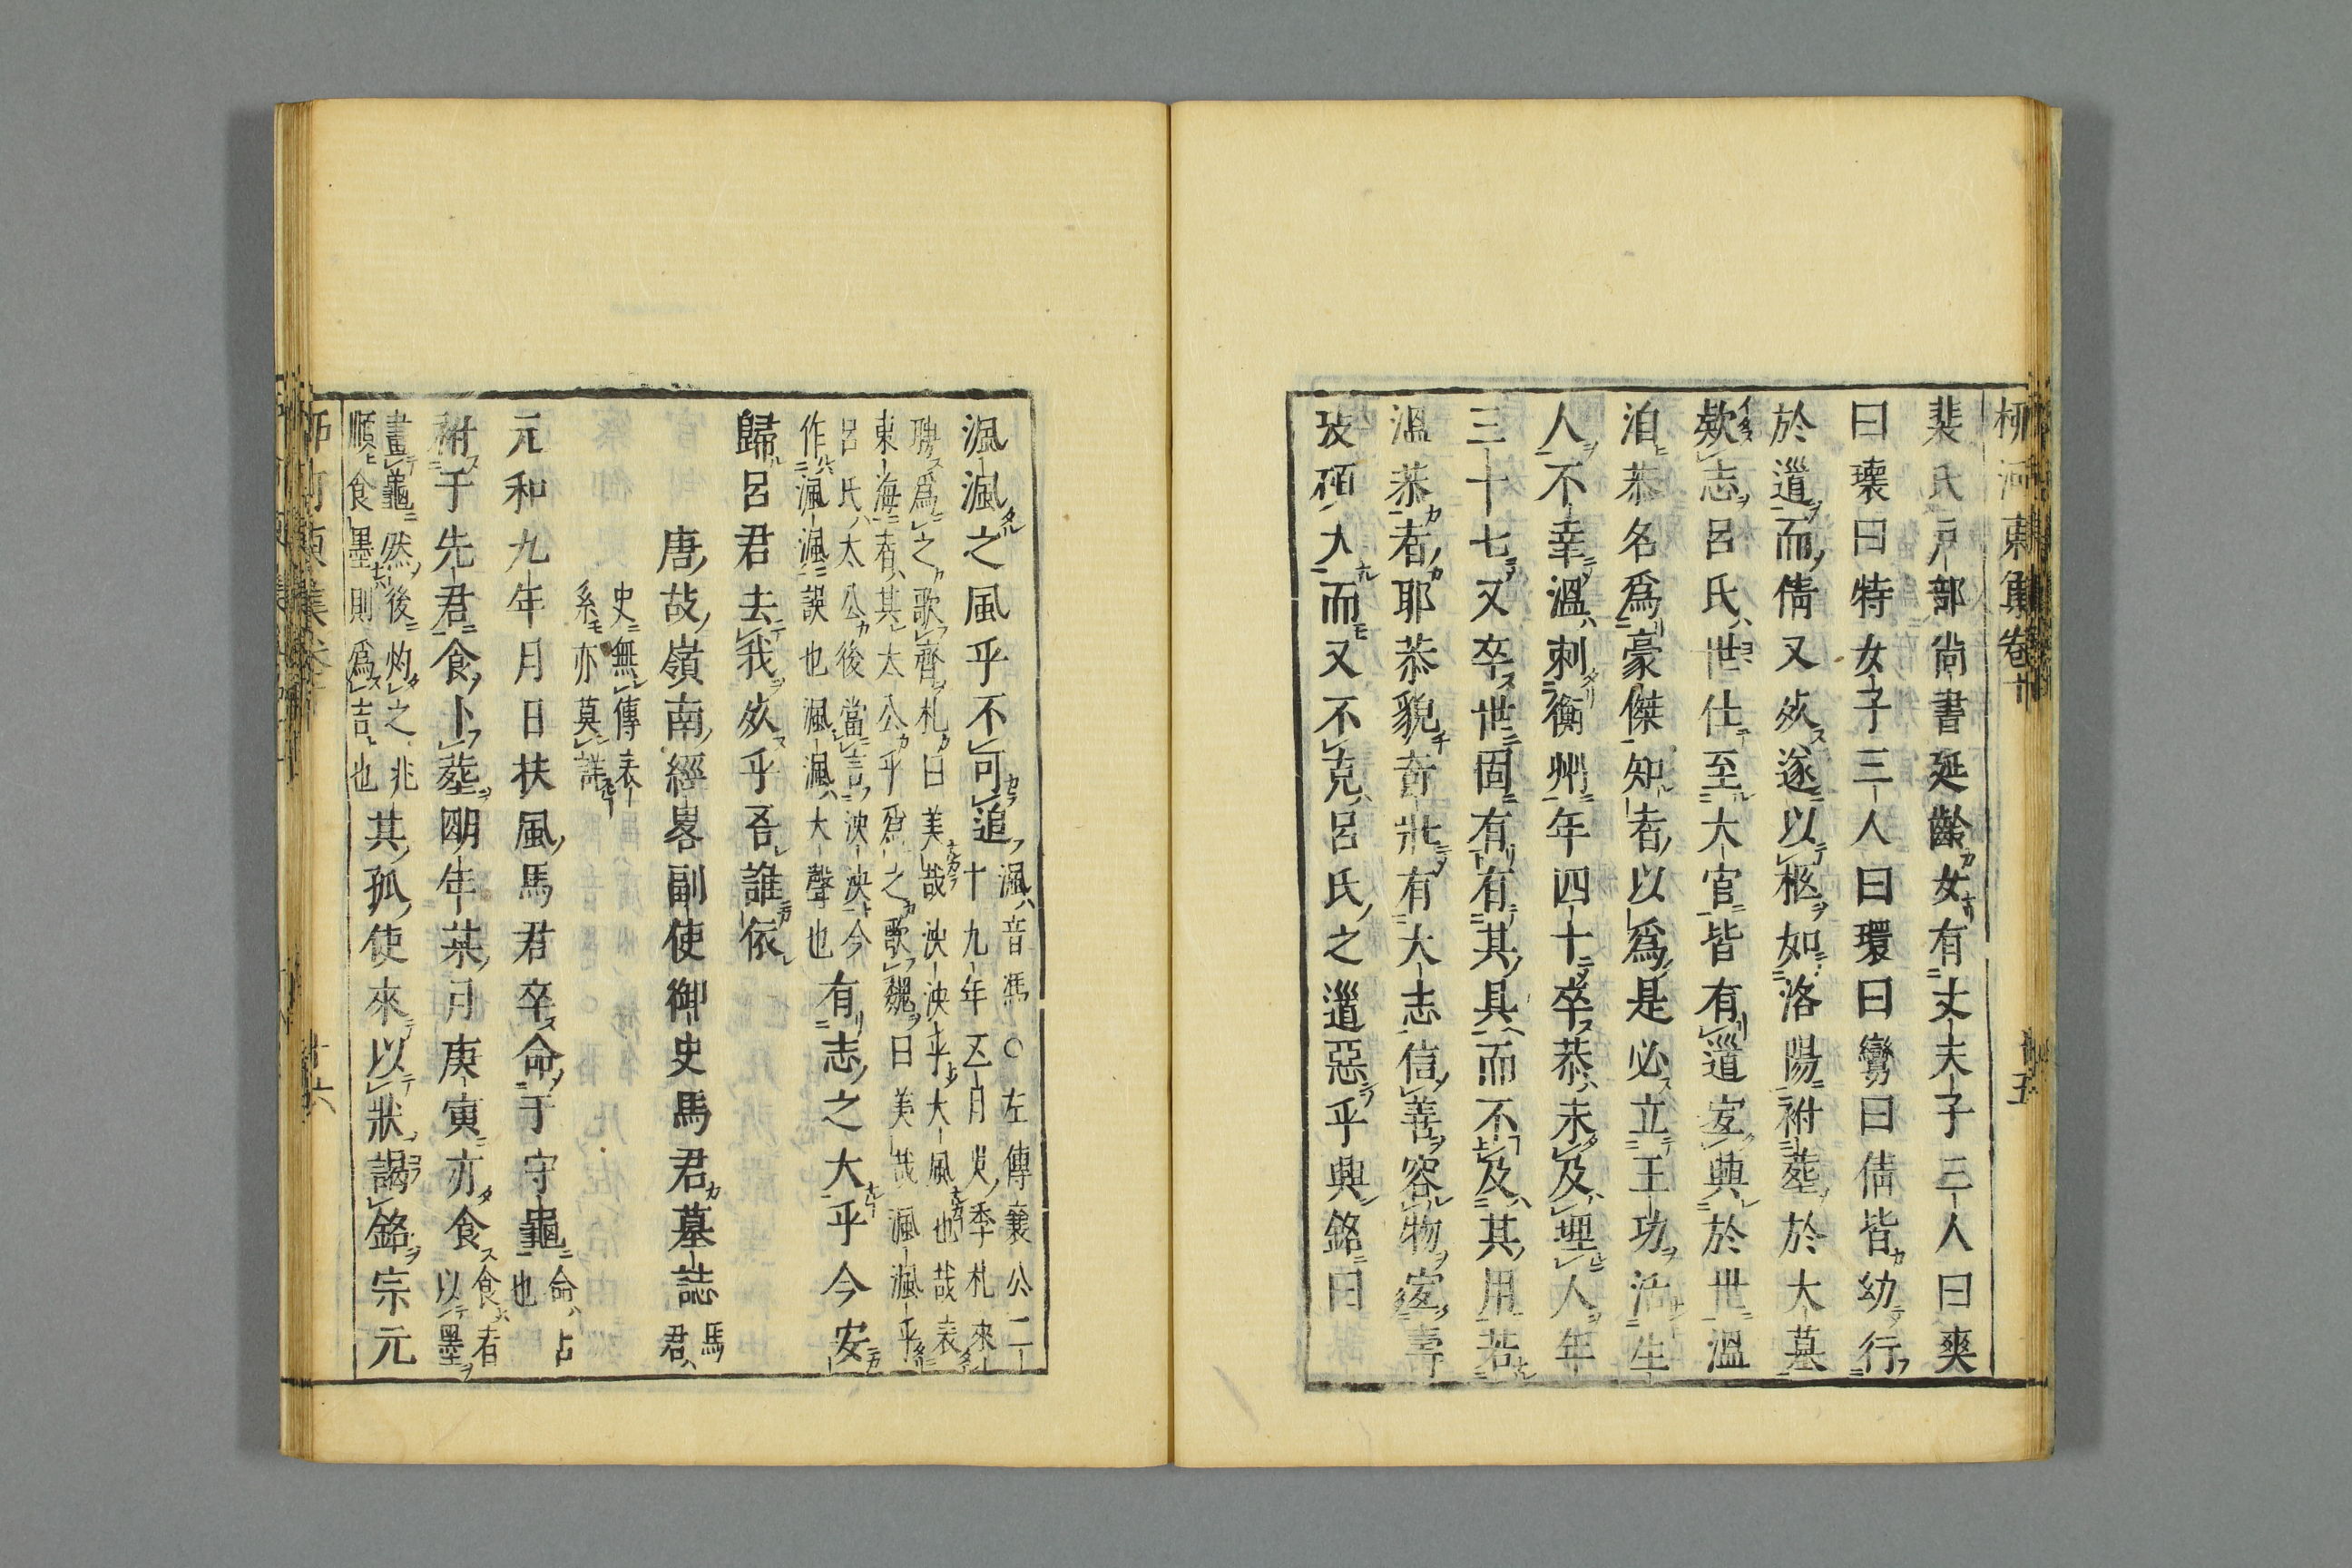 柳河東集卷十
裴氏戸部尚書延齡女有丈夫子三人曰爽
曰瓌曰特女子三人曰環曰鸞曰倩皆幼行
於道而倩又死遂以柩如洛陽祔葬於大墓
欸志呂氏世仕至大官皆有道宜興於世溫
洎恭名爲豪傑知者以爲是必立王功活生
人不幸溫刺衡州年四十卒恭未及理人年
三十七又卒世固有有其具而不及其用若
溫恭者耶恭貌奇壯有大志信善容物宜壽
考碩大而又不克呂氏之道惡乎興銘曰
渢渢之風乎不可追
渢音馮〇左傳襄公二
十九年五月吳季札來
聘爲之歌齊札曰美哉泱泱乎大風也哉表
東海者其太公乎爲之歌魏曰美哉渢渢乎
呂氏太公後當言泱泱今
作渢渢誤也渢渢大聲也
有志之大乎今安
歸呂君去我死乎吾誰依
唐故嶺南經畧副使御史馬君墓誌
馬
君
史無傳表
系亦莫詳
元和九年月日扶風馬君卒命于守龜
命占
也
祔于先君食卜葬明年某月庚寅亦食
食者
以墨
畫龜然後灼之兆
順食墨則爲吉也
其孤使來以狀謁銘宗元
十六